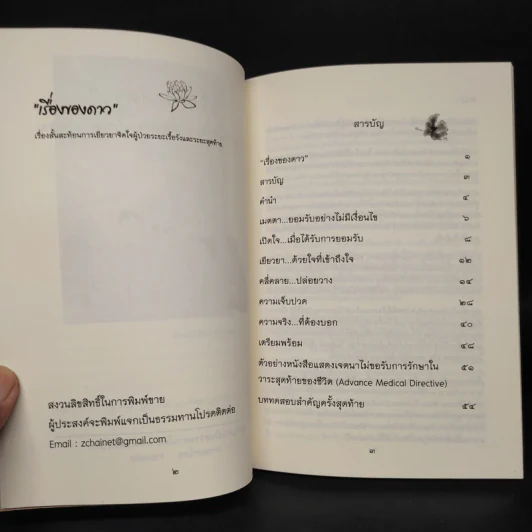 "เรื่องของดาว"
เรื่องสั้นสะท้อนการเยียวยาจิตใจผู้ป่วยระยะเรื้อรังและระยะสุดท้าย
สงวนลิขสิทธิ์ในการพิมพ์ขาย
ผู้ประสงค์จะพิมพ์แจกเป็นธรรมทานโปรดติดต่อ
Email : zchainet@gmail.com
๒
สารบัญ
"เรื่องของดาว" ๑
สารบัญ ๓
คำนำ ๔
เมตตา...ยอมรับอย่างไม่มีเงื่อนไข ๖
เปิดใจ...เมื่อได้รับการยอมรับ ๘
เยียวยา...ด้วยใจที่เข้าถึงใจ ๑๒
คลี่คลาย...ปล่อยวาง ๑๔
ความเจ็บปวด ๒๘
ความจริง...ที่ต้องบอก ๔๐
เตรียมพร้อม ๔๘
ตัวอย่างหนังสือแสดงเจตนาไม่ขอรับการรักษาใน ๕๑
วาระสุดท้ายของชีวิต (Advance Medical Directive)
บททดสอบสำคัญครั้งสุดท้าย ๕๔
๓